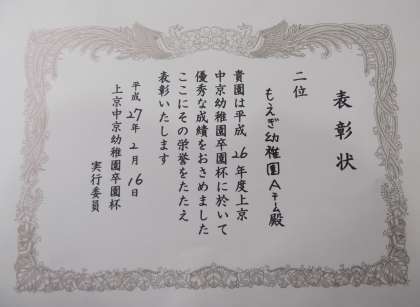 表彰状
二位
もえぎ幼稚園Aチーム殿
貴園は平成26年度上京
中京幼稚園卒園杯に於いて
優秀な成績をおさめました
ここにその栄誉をたたえ
表彰いたします
平成27年2月16日
上京中京幼稚園卒園杯
実行委員